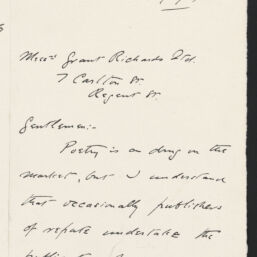 Messrs Grant Richards Ltd.
7 Carlton St
Regent St.
Gentlemen:-
Poetry is a drug on the
market, but I understand
that occasionally publishers
of repute undertake the